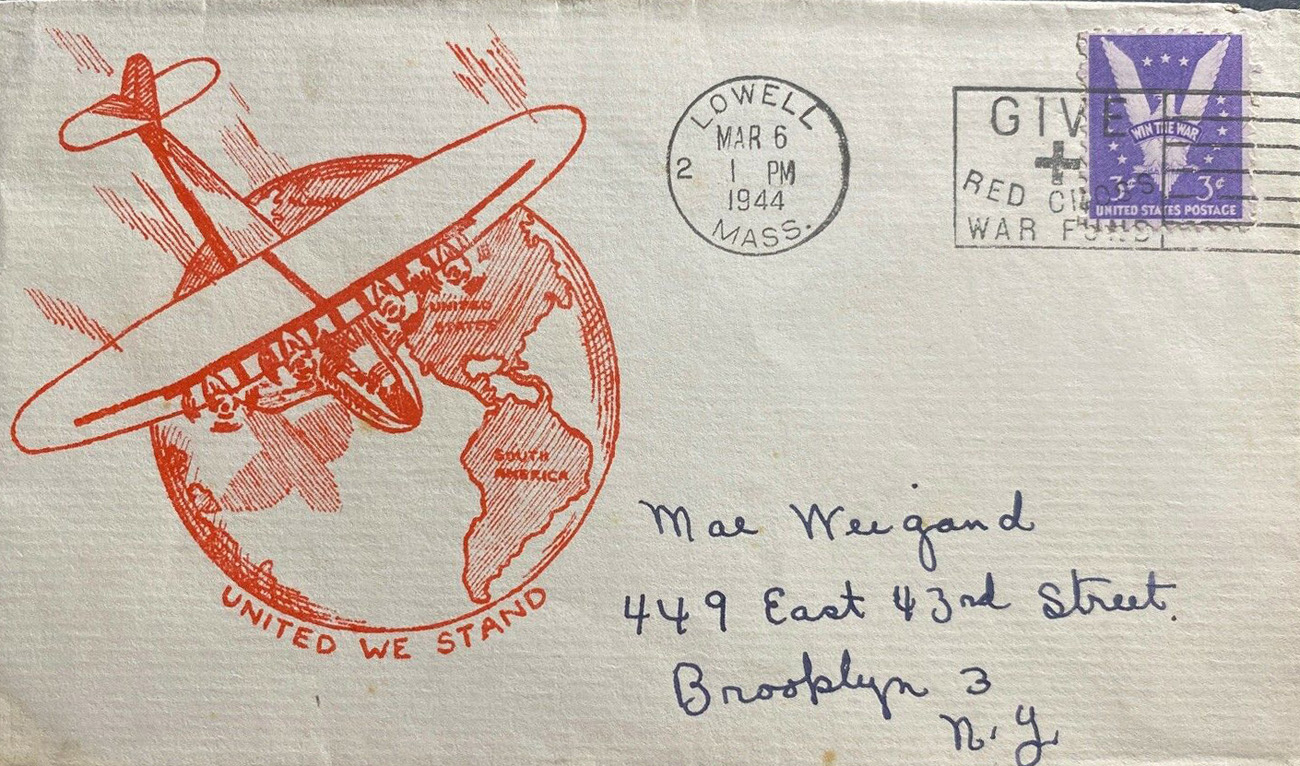 LOWELL
MAR 6
2 1 PM
1944
MASS.
GIVE
RED CROSS
WAR FUND
WIN THE WAR
3¢ 3¢
UNITED STATES POSTAGE
UNITED
STATES
SOUTH
AMERICA
UNITED WE STAND
Mae Weigand
449 East 43rd Street.
Brooklyn 3
N. Y.